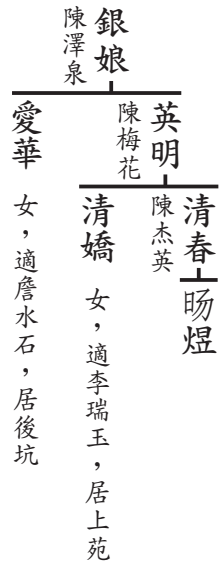 銀娘
陳澤泉
英明
陳梅花
清春
陳杰英
暘煜
清嬌
女，適李瑞玉，居上苑
愛華
女，適詹水石，居後坑